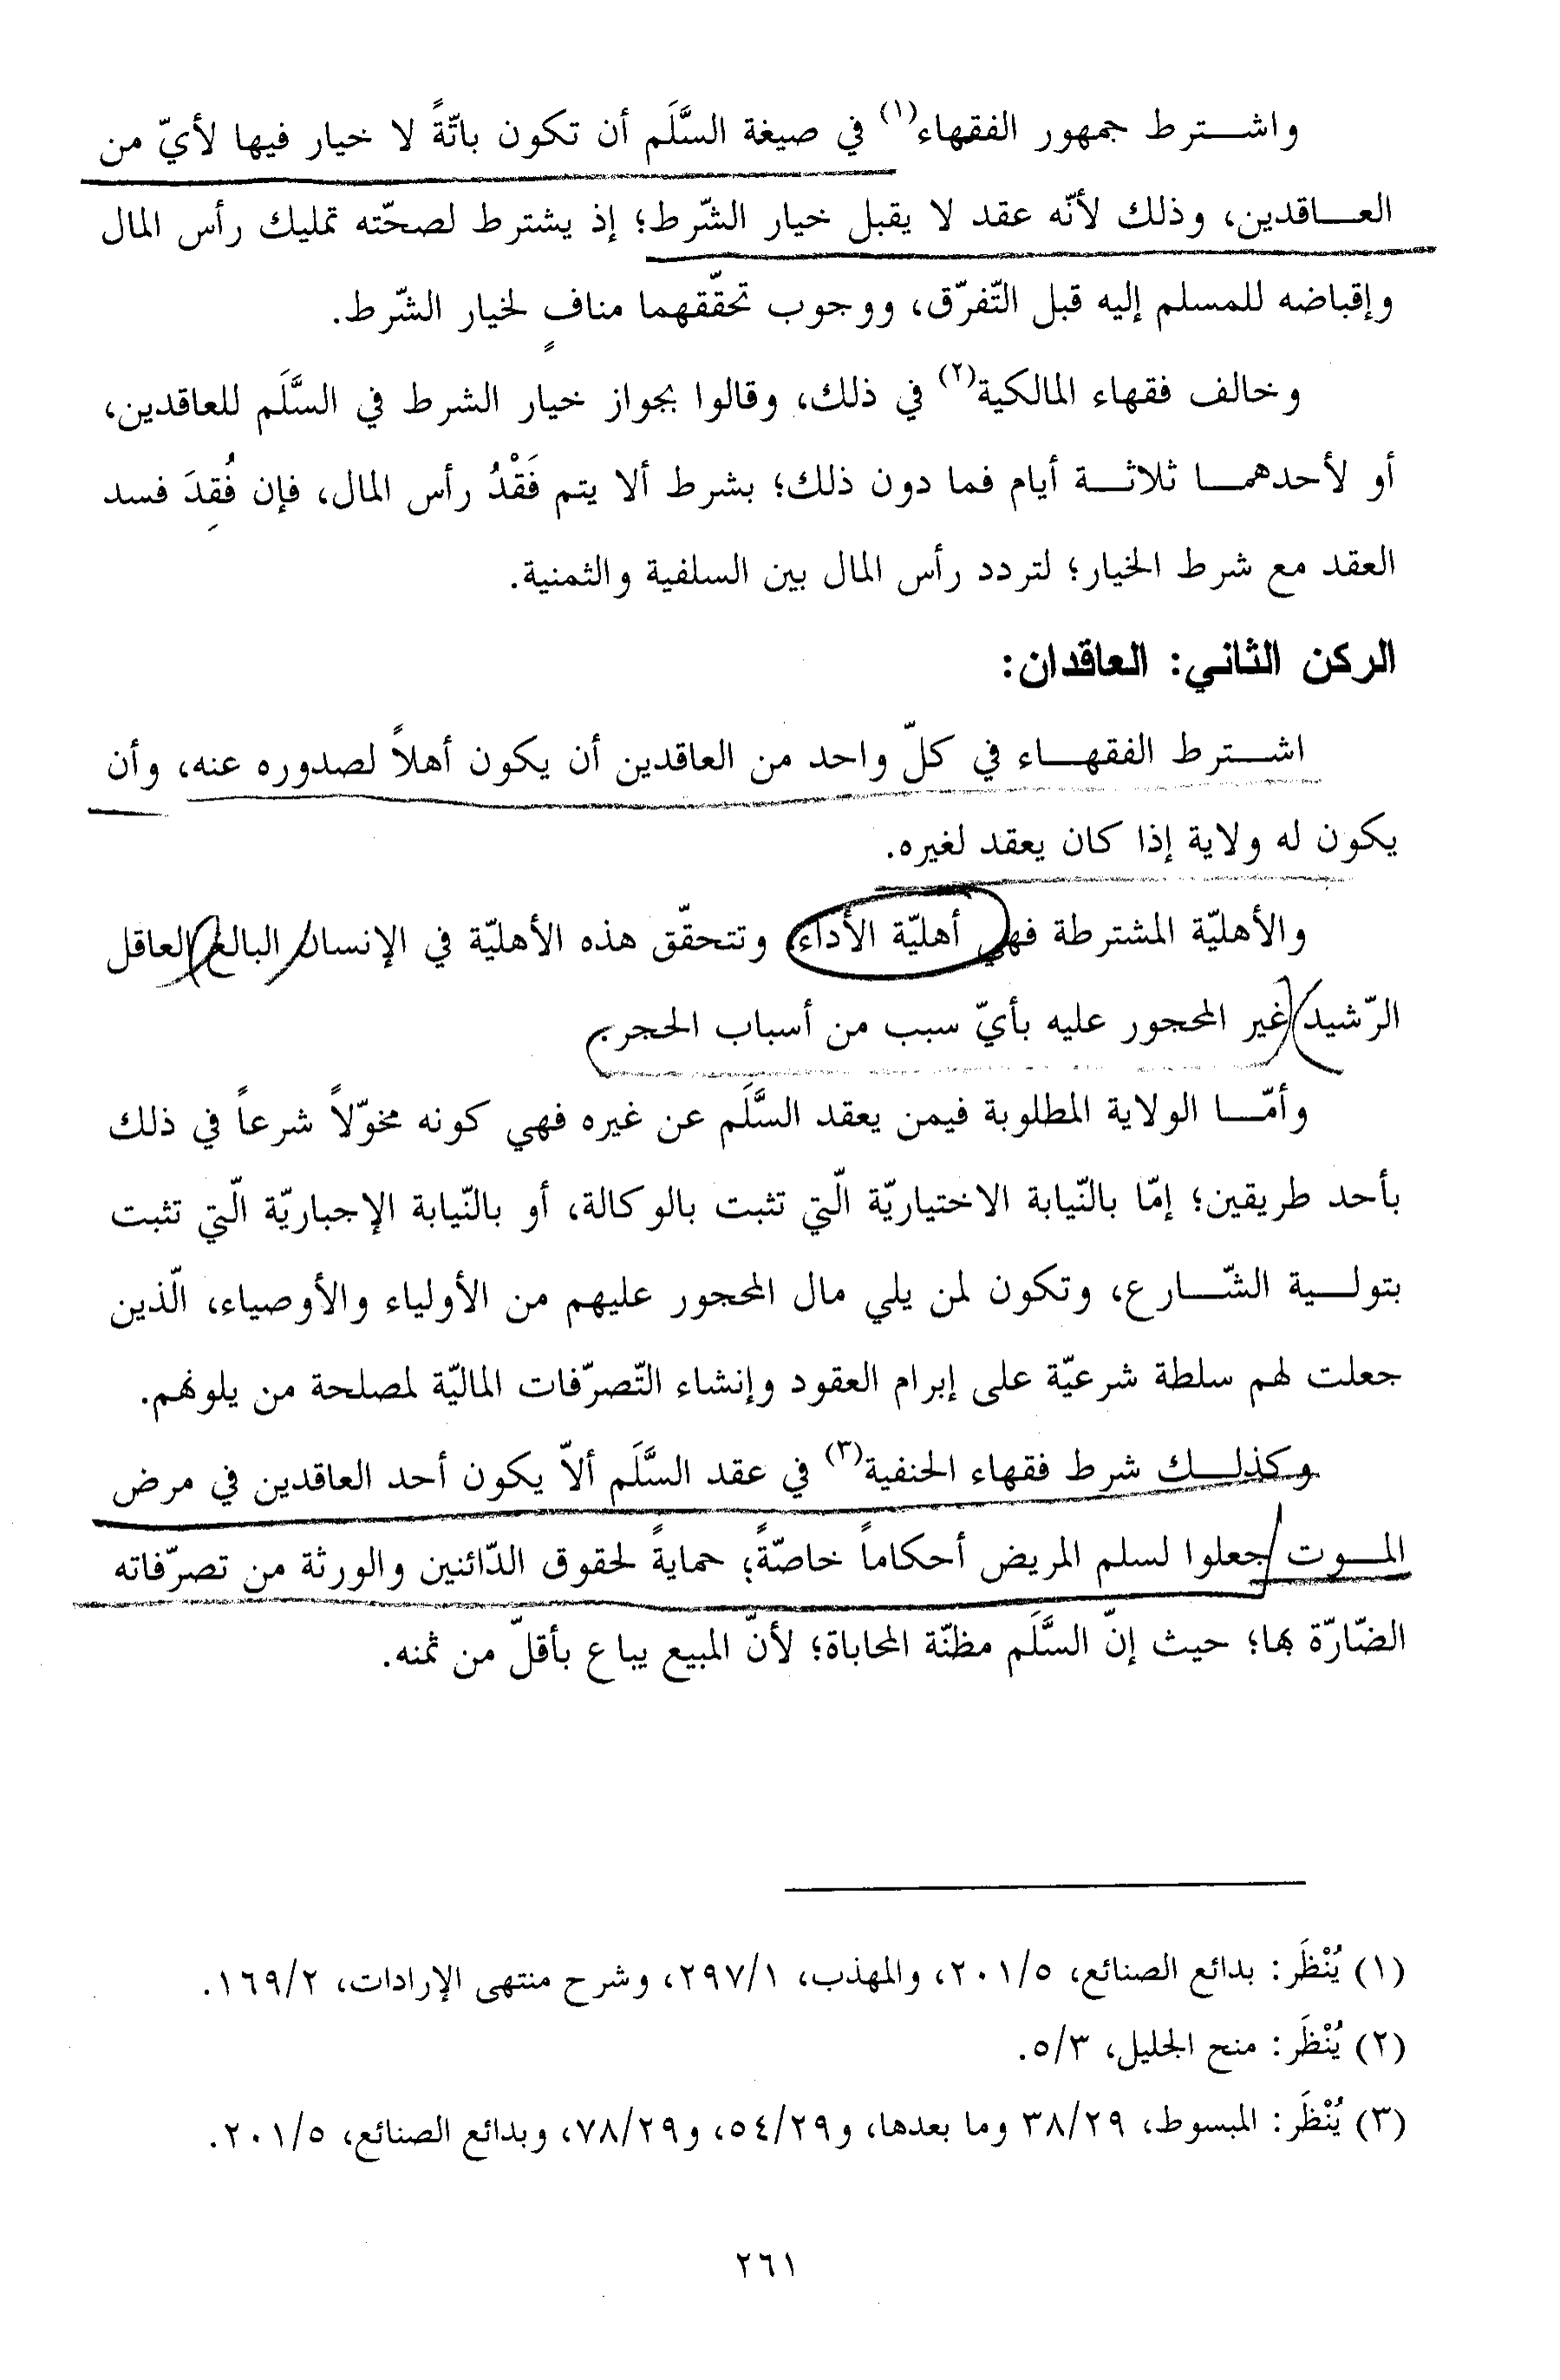 واشترط جمهور الفقهاء(١) في صيغة السَّلَم أن تكون باتّةً لا خيار فيها لأيّ من
العاقدين، وذلك لأنّه عقد لا يقبل خيار الشّرط؛ إذ يشترط لصحّته تمليك رأس المال
وإقباضه للمسلم إليه قبل التّفرّق، ووجوب تحقّقهما منافٍ لخيار الشّرط.
وخالف فقهاء المالكية(٢) في ذلك، وقالوا بجواز خيار الشرط في السَّلَم للعاقدين،
أو لأحدهما ثلاثة أيام فما دون ذلك؛ بشرط ألا يتم فَقْدُ رأس المال، فإن فُقِدَ فسد
العقد مع شرط الخيار؛ لتردد رأس المال بين السلفية والثمنية.
الركن الثاني: العاقدان:
اشترط الفقهاء في كلّ واحد من العاقدين أن يكون أهلاً لصدوره عنه، وأن
يكون له ولاية إذا كان يعقد لغيره.
والأهليّة المشترطة فهي أهليّة الأداء، وتتحقّق هذه الأهليّة في الإنسان البالغ العاقل
الرّشيد غير المحجور عليه بأيّ سبب من أسباب الحجر.
وأمّا الولاية المطلوبة فيمن يعقد السَّلَم عن غيره فهي كونه مخوّلاً شرعاً في ذلك
بأحد طريقين؛ إمّا بالنّيابة الاختياريّة الّتي تثبت بالوكالة، أو بالنّيابة الإجباريّة الّتي تثبت
بتولية الشّارع، وتكون لمن يلي مال المحجور عليهم من الأولياء والأوصياء، الّذين
جعلت لهم سلطة شرعيّة على إبرام العقود وإنشاء التّصرّفات الماليّة لمصلحة من يلونهم.
وكذلك شرط فقهاء الحنفية(٣) في عقد السَّلَم ألاّ يكون أحد العاقدين في مرض
الموت جعلوا لسلم المريض أحكاماً خاصّةً؛ حمايةً لحقوق الدّائنين والورثة من تصرّفاته
الضّارّة بها؛ حيث إنّ السَّلَم مظنّة المحاباة؛ لأنّ المبيع يباع بأقلّ من ثمنه.
(١) يُنْظَر: بدائع الصنائع، ٢٠١/٥، والمهذب، ٢٩٧/١، وشرح منتهى الإرادات، ١٦٩/٢.
(٢) يُنْظَر: منح الجليل، ٥/٣.
(٣) يُنْظَر: المبسوط، ٣٨/٢٩ وما بعدها، و٥٤/٢٩، و٧٨/٢٩، وبدائع الصنائع، ٢٠١/٥.
٢٦١